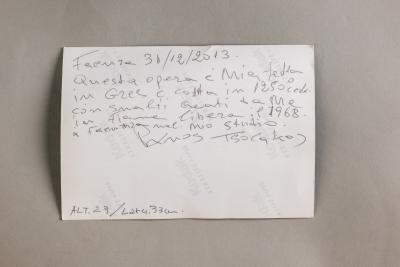 Faenza 31/12/2013.
Questa opera è Mia fatta
in Gres è cotta in 1250
con smalti creati da Me
in fiama libera il 1968.
a Faenza nel mio studio.
ALT. 27/Larg. 33cm.